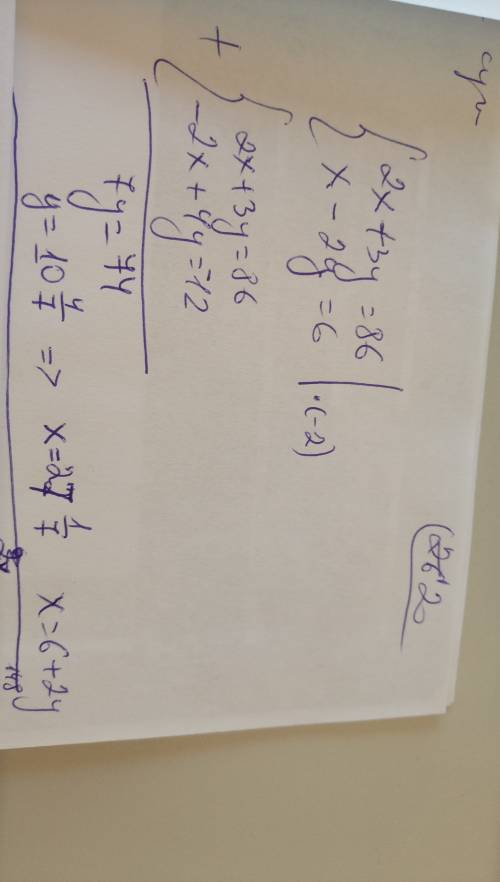 2x+3y=86
x-2y=6 | ·(-2)
+
2x+3y=86
-2x+4y=-12
7y=74
y=10 4/7 => x=27 1/7 x=6+2y
148